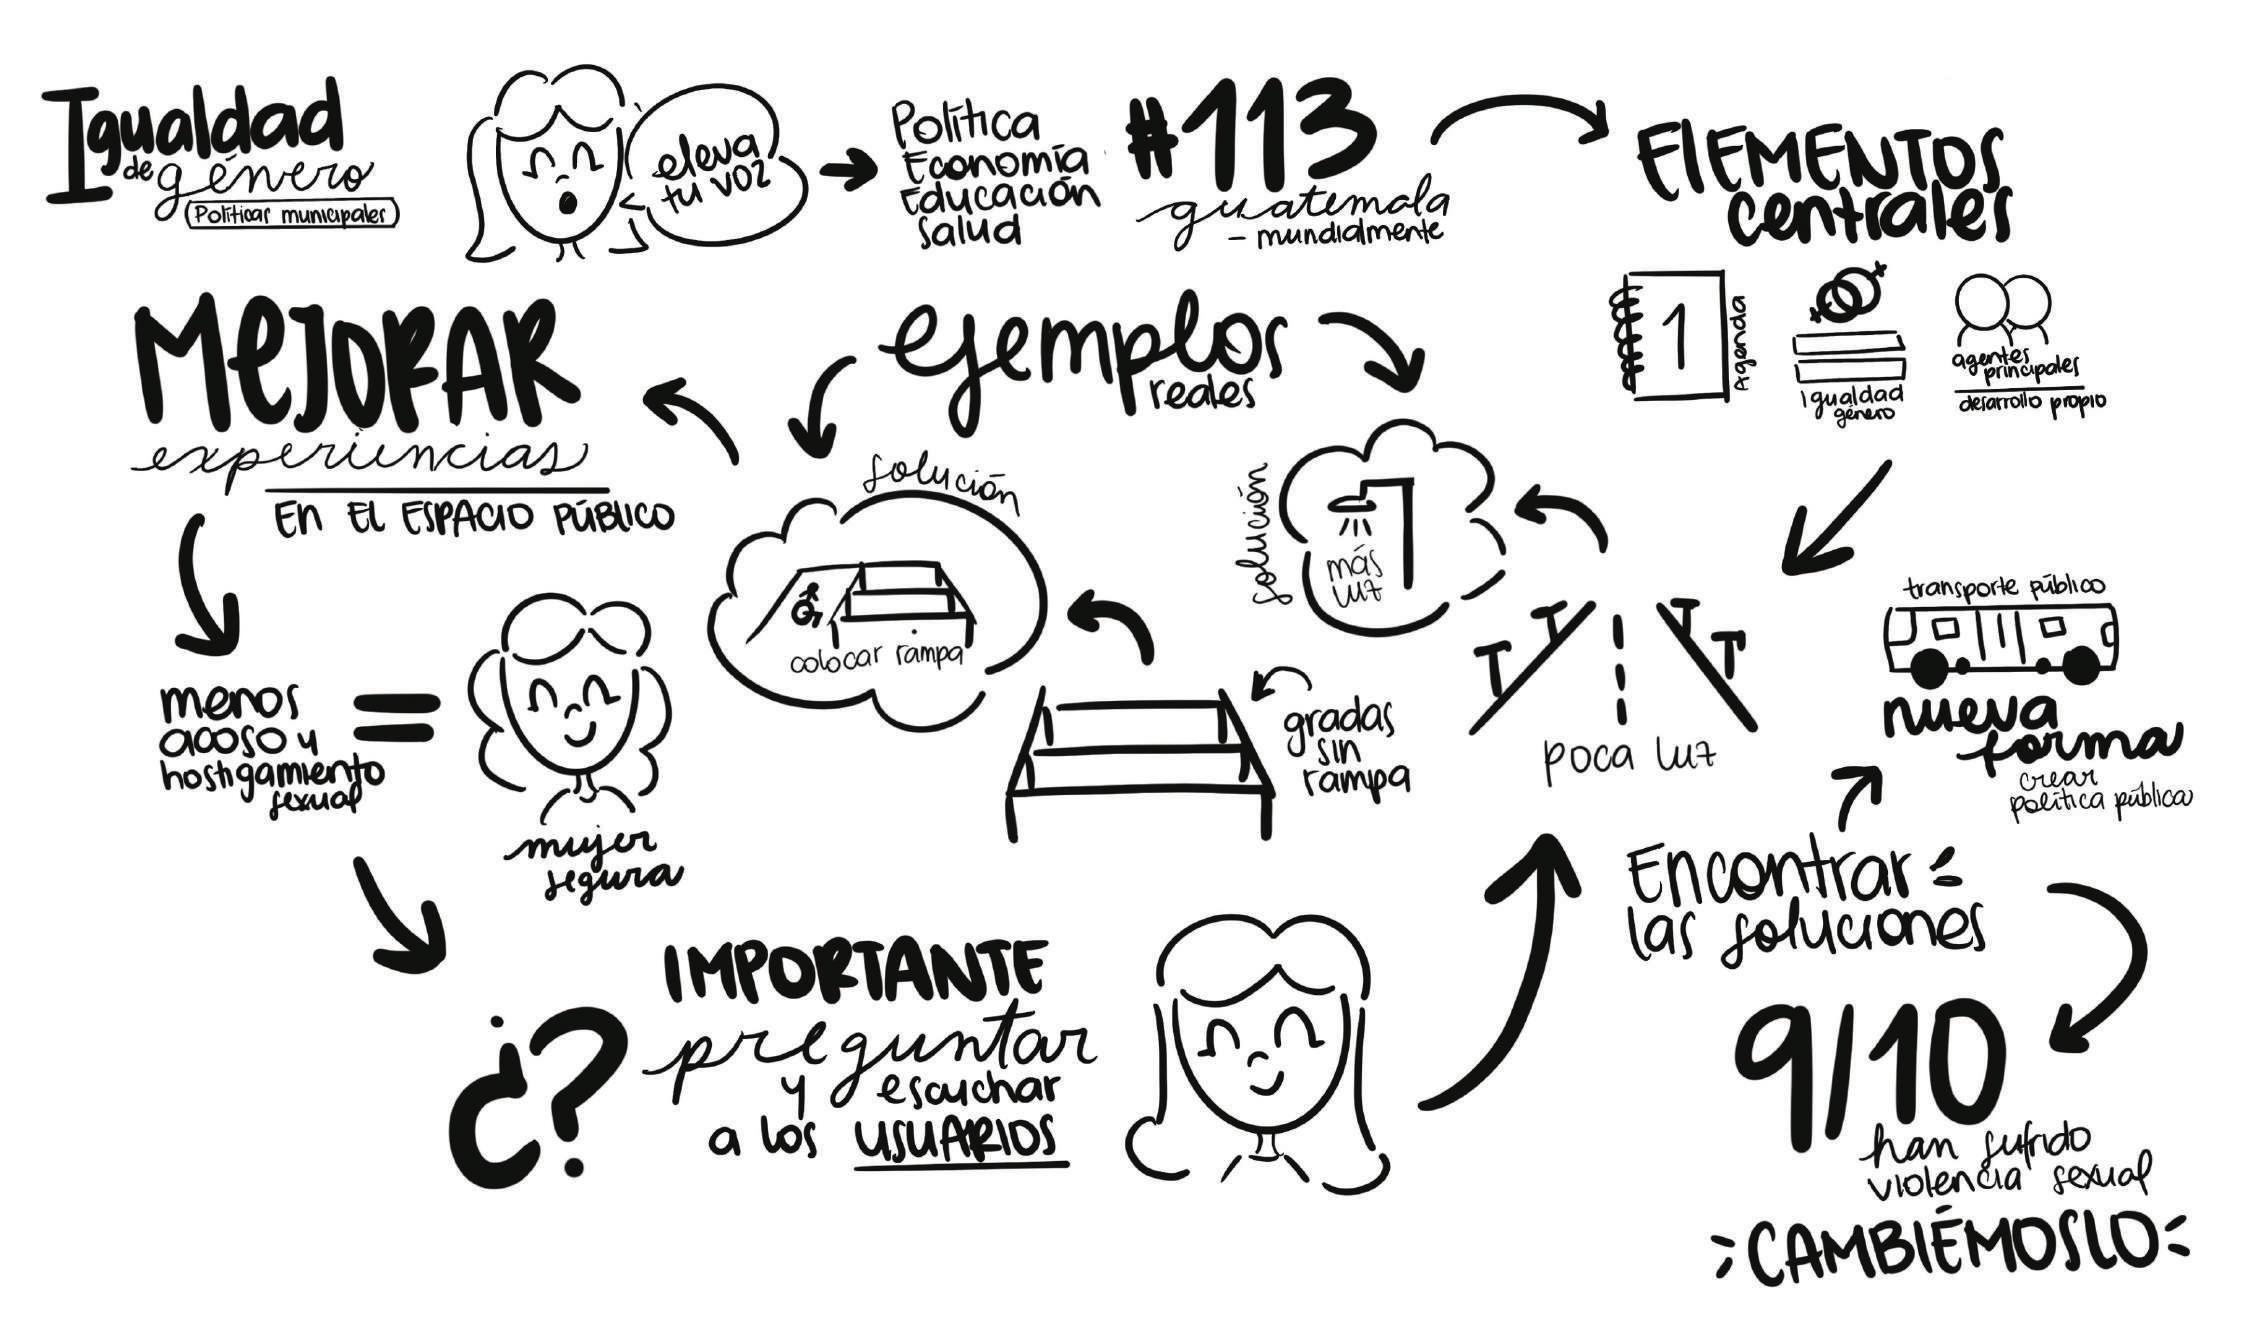 Igualdad
de género
Políticas municipales
eleva
tu voz
Política
Economía
Educación
Salud
#113
guatemala
- mundialmente
ELEMENTOS
centrales
1
Agenda
Igualdad
género
agentes
principales
desarrollo propio
MEJORAR
experiencias
EN EL ESPACIO PÚBLICO
ejemplos
reales
solución
colocar rampa
solución
más
luz
gradas
sin
rampa
poca luz
transporte público
nueva
forma
crear
política pública
menos
acoso y
hostigamiento
sexual
=
mujer
segura
¿?
IMPORTANTE
preguntar
y escuchar
a los USUARIOS
Encontrar
las soluciones
9/10
han sufrido
violencia sexual
CAMBIÉMOSLO